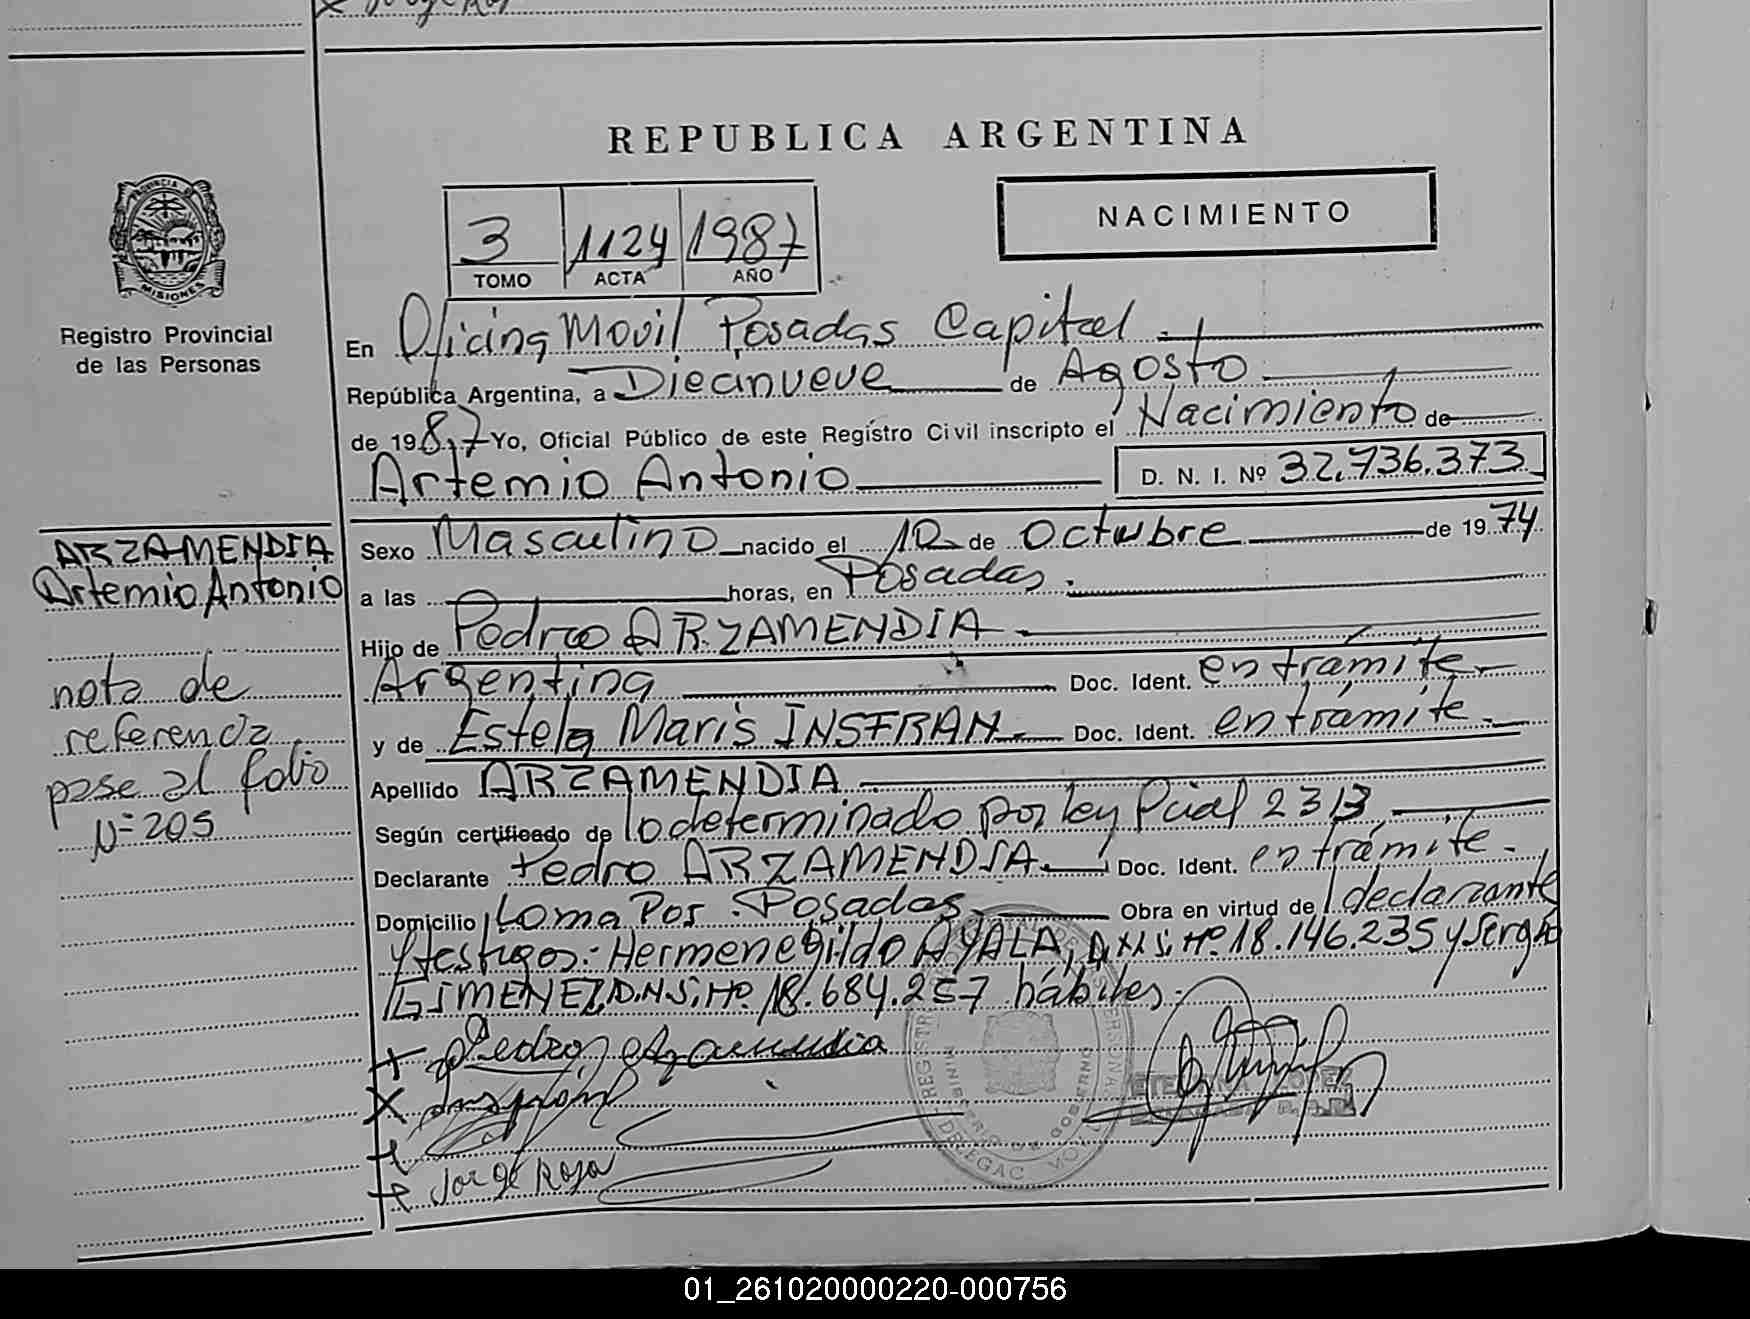 REPUBLICA ARGENTINA
NACIMIENTO
3 1124 1987
TOMO ACTA AÑO
PROVINCIA DE
MISIONES
Registro Provincial
de las Personas
En Oficina Movil Posadas Capital
República Argentina, a Diecinueve de Agosto
de 1987 Yo, Oficial Público de este Registro Civil inscripto el Nacimiento de
Artemio Antonio D. N. I. Nº 32.736.373
Sexo Masculino nacido el 10 de Octubre de 1974
a las horas, en Posadas.
Hijo de Pedro ARZAMENDIA
Argentina Doc. Ident. en trámite
y de Estela Maris INSFRAN Doc. Ident. en trámite
Apellido ARZAMENDIA
Según certificado de lo determinado por ley Pcial 2313
Declarante Pedro ARZAMENDIA Doc. Ident. en trámite.
Domicilio Loma Poi Posadas Obra en virtud de declarante
y testigos: Hermenegildo AYALA, D.N.I. Nº 18.146.235 y Sergio
GIMENEZ D.N.I. Nº 18.684.257 hábiles.
Pedro Arzamendia
Jorge Roja
ARZAMENDIA
Artemio Antonio
nota de
referencia
pase al folio
Nº 205
01_261020000220-000756